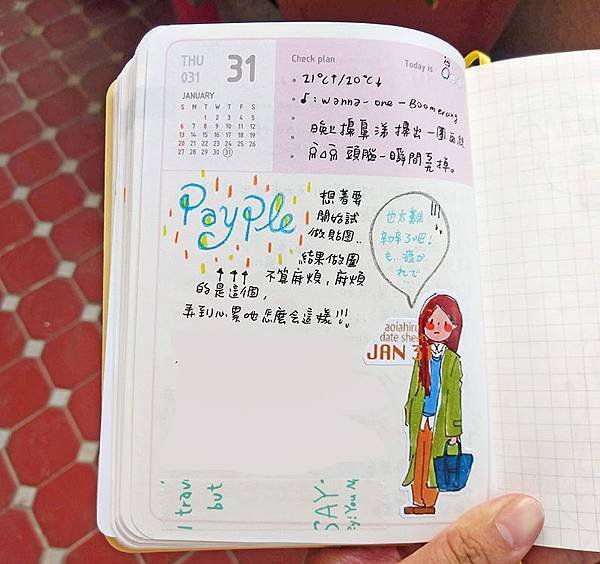 THU
031
31
JANUARY
S M T W T F S
1 2 3 4 5
6 7 8 9 10 11 12
13 14 15 16 17 18 19
20 21 22 23 24 25 26
27 28 29 30 31
Check plan
Today is
21°C↑/20°C↓
♪: wanna-one-Boomerang
晚上擤鼻涕擤出一團血
頭腦一瞬間亮掉。
PayPle
想著要
開始試
做貼圖..
結果做圖
↑↑↑ 不算麻煩,麻煩
的是這個,
弄到心累吔怎麼会這樣!!!
也太難
辛解了吧!
も...疲か
れて
aoiahiru
date shee
JAN 31
I travi
but
SAY.
by: You M